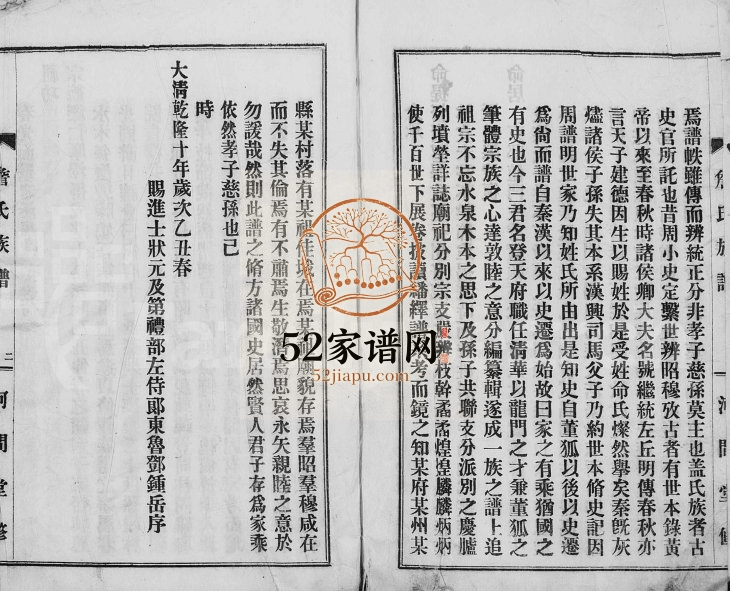 焉譜帙雖傳而辨統正分非孝子慈孫莫主也盖氏族者古
史官所託也昔周小史定繫世辨昭穆攷古者有世本錄黃
帝以來至春秋時諸侯卿大夫名號繼統左丘明傳春秋亦
言天子建德因生以賜姓於是受姓命氏燦然舉矣秦旣灰
燼諸侯子孫失其本系漢興司馬父子乃約世本脩史記因
周譜明世家乃知姓氏所由出是知史自董狐以後以史遷
爲尙而譜自秦漢以來以史遷爲始故曰家之有乘猶國之
有史也今三君名登天府職任淸華以龍門之才兼董狐之
筆體宗族之心達敦陸之意分編纂輯遂成一族之譜上追
祖宗不忘水泉木本之思下及孫子共聯支分派別之慶臚
列墳塋詳誌廟祀分別宗支 枝幹矞矞煌煌麟麟炳炳
使千百世下展卷披讀繙繹譜 考而鏡之知某府某州某
縣某村落有某祖佳城在焉某 廟貌存焉羣昭羣穆咸在
而不失其倫焉有不肅焉生敬 焉思哀永矢親睦之意於
勿諼哉然則此譜之脩方諸國史居然賢人君子存爲家乘
依然孝子慈孫也已
時
大淸乾隆十年歲次乙丑春
賜進士狀元及第禮部左侍郎東魯鄧鍾岳序
詹氏族譜
二
河間堂修
52家谱网
52jiapu.com